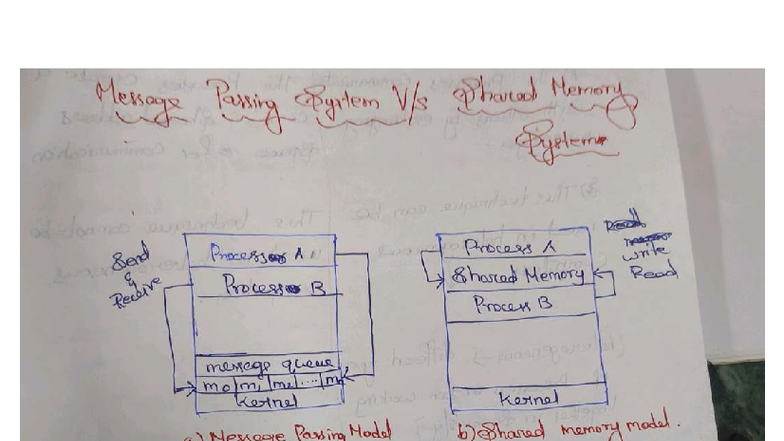 Message Passing System V/s Shared Memory
System
Send
&
Receive
Process A
Process B
message queue
m0 m1 m2 .... mn
Kernel
a) Message Passing Model
Process A
Shared Memory
Process B
Kernel
write
Read
b) Shared memory model.